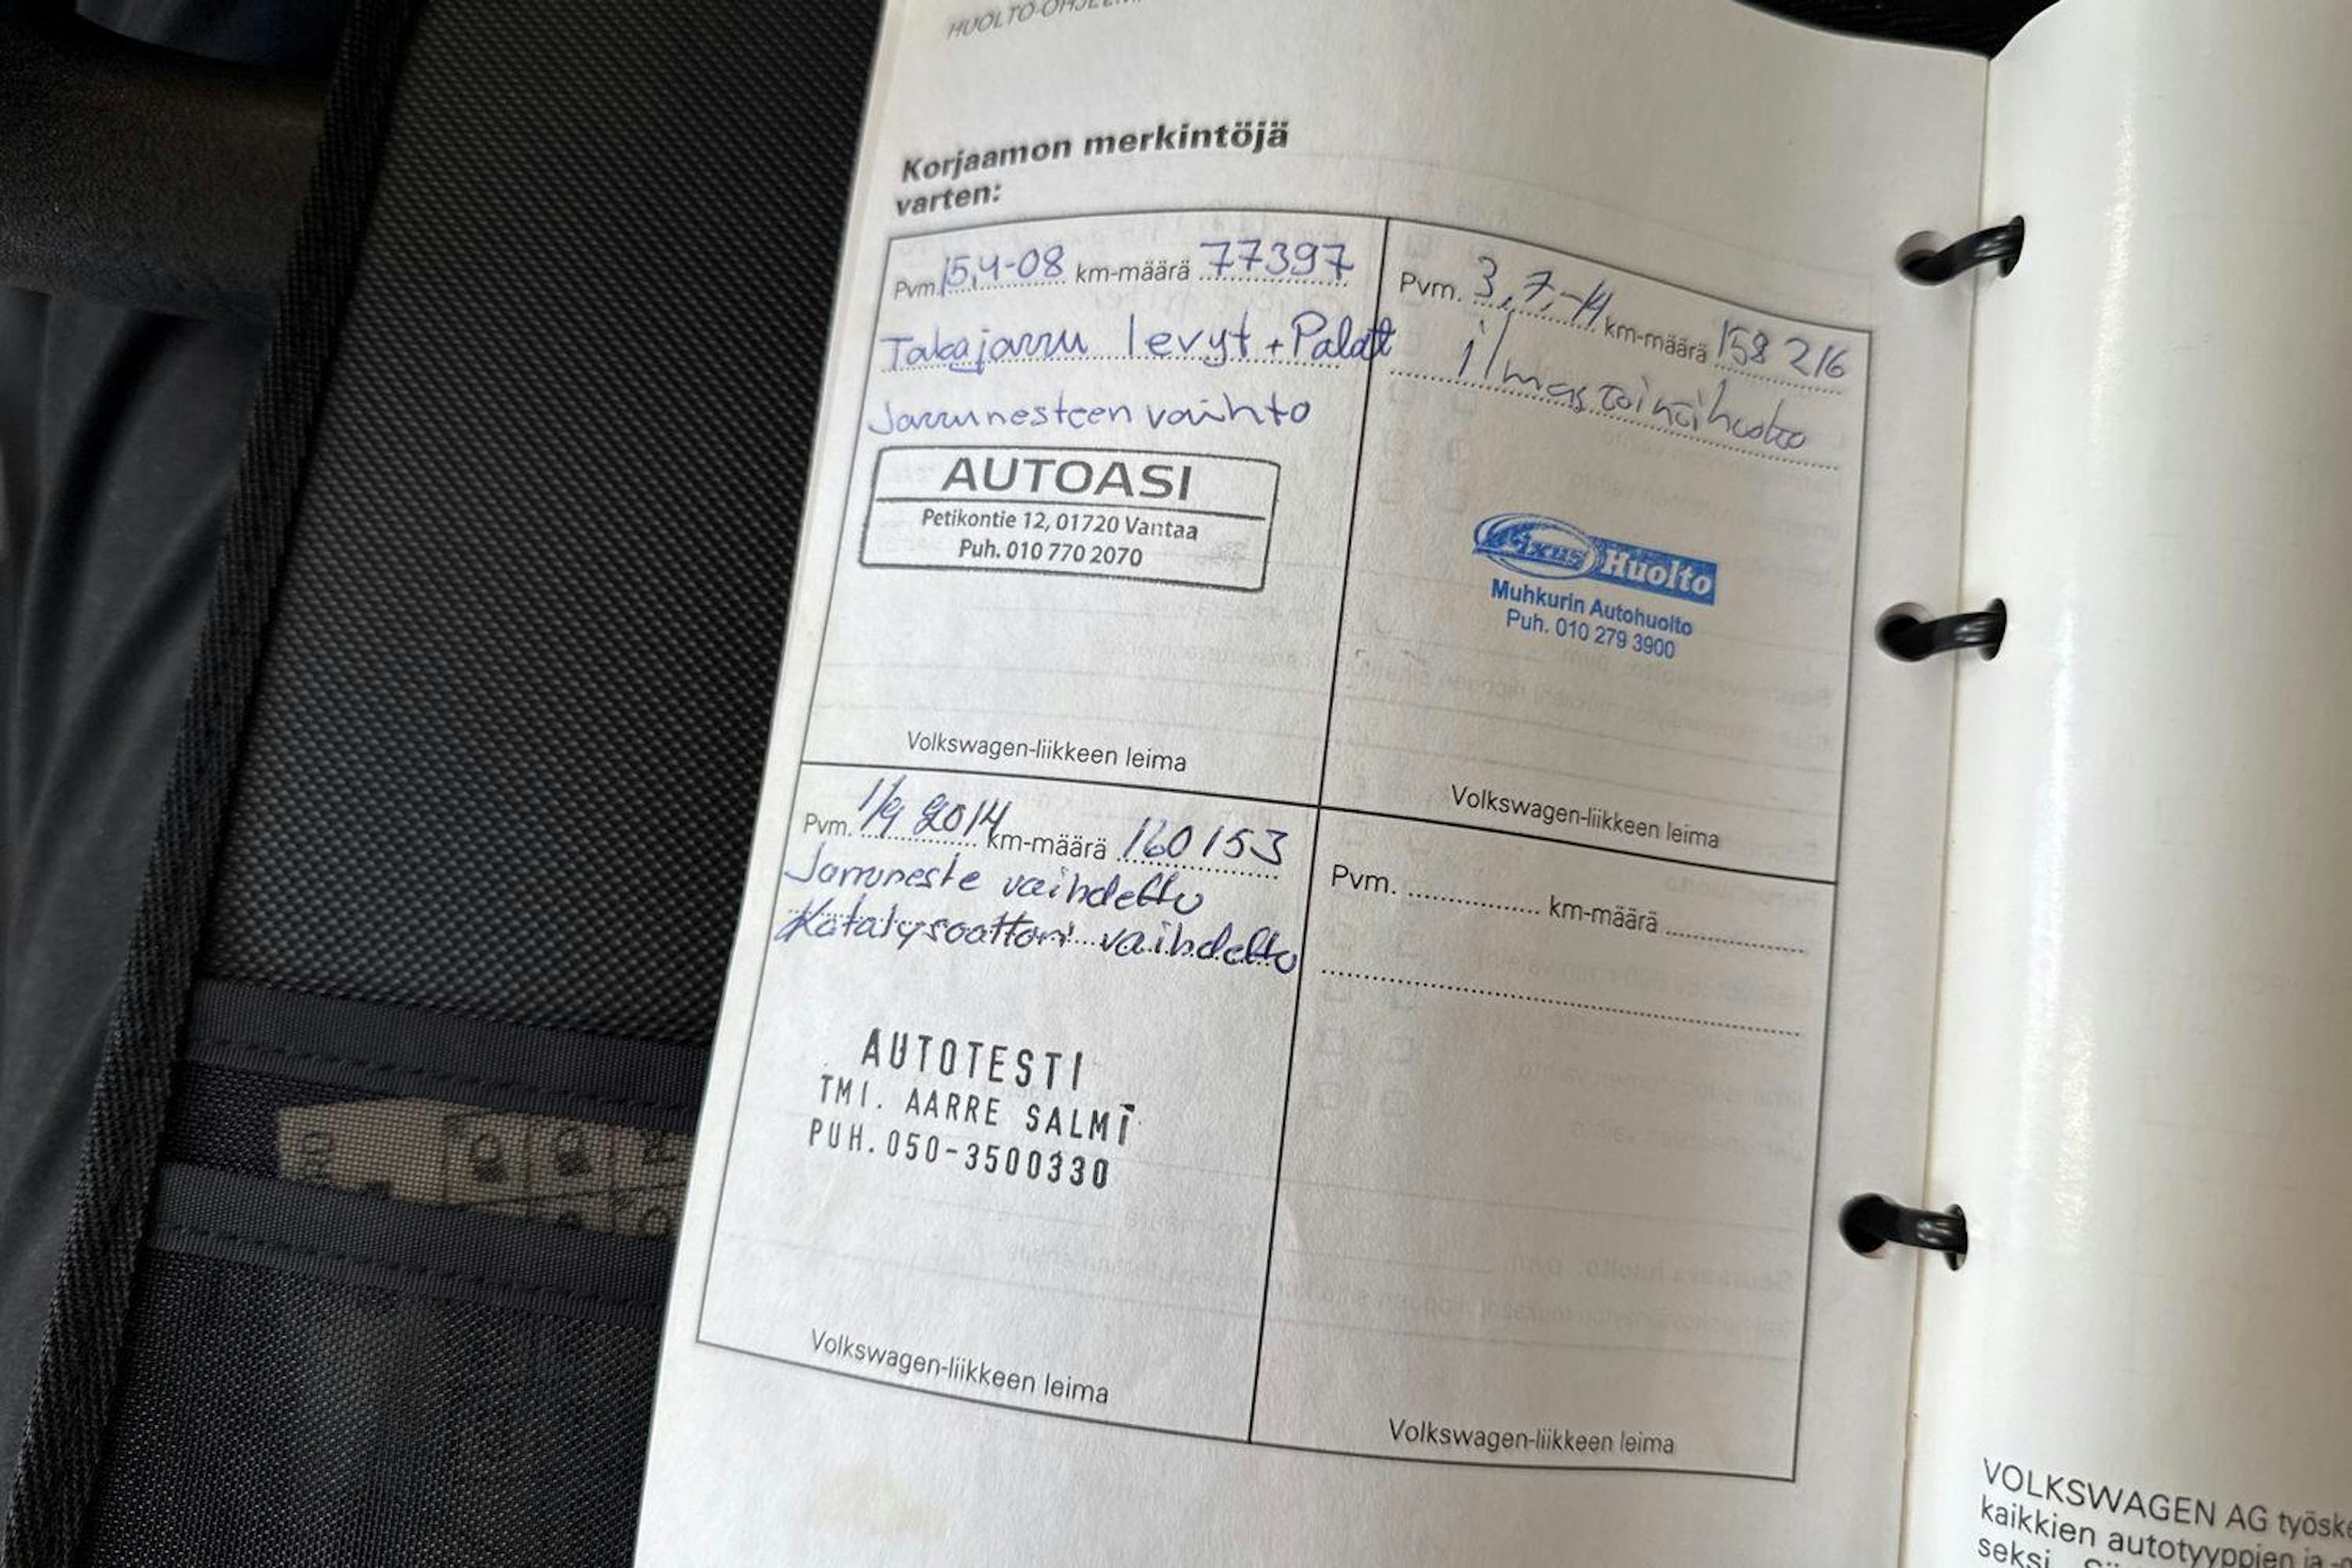 HUOLTO-OHJELMA
Korjaamon merkintöjä
varten:
Pvm. 15,4-08 km-määrä 77397
Takajarru levyt + Palat
Jarrunesteen vaihto
AUTOASI
Petikontie 12, 01720 Vantaa
Puh. 010 770 2070
Volkswagen-liikkeen leima
Pvm. 3,7,-14 km-määrä 158 216
ilmastoinnihuolto
Fixus Huolto
Muhkurin Autohuolto
Puh. 010 279 3900
Volkswagen-liikkeen leima
Pvm. 1/9 2014 km-määrä 160 153
Jarruneste vaihdettu
Katalysaattori vaihdettu
AUTOTESTI
TMI. AARRE SALMI
PUH. 050-3500330
Volkswagen-liikkeen leima
Pvm. km-määrä
Volkswagen-liikkeen leima
VOLKSWAGEN AG työske
kaikkien autotyyppien ja
seksi.